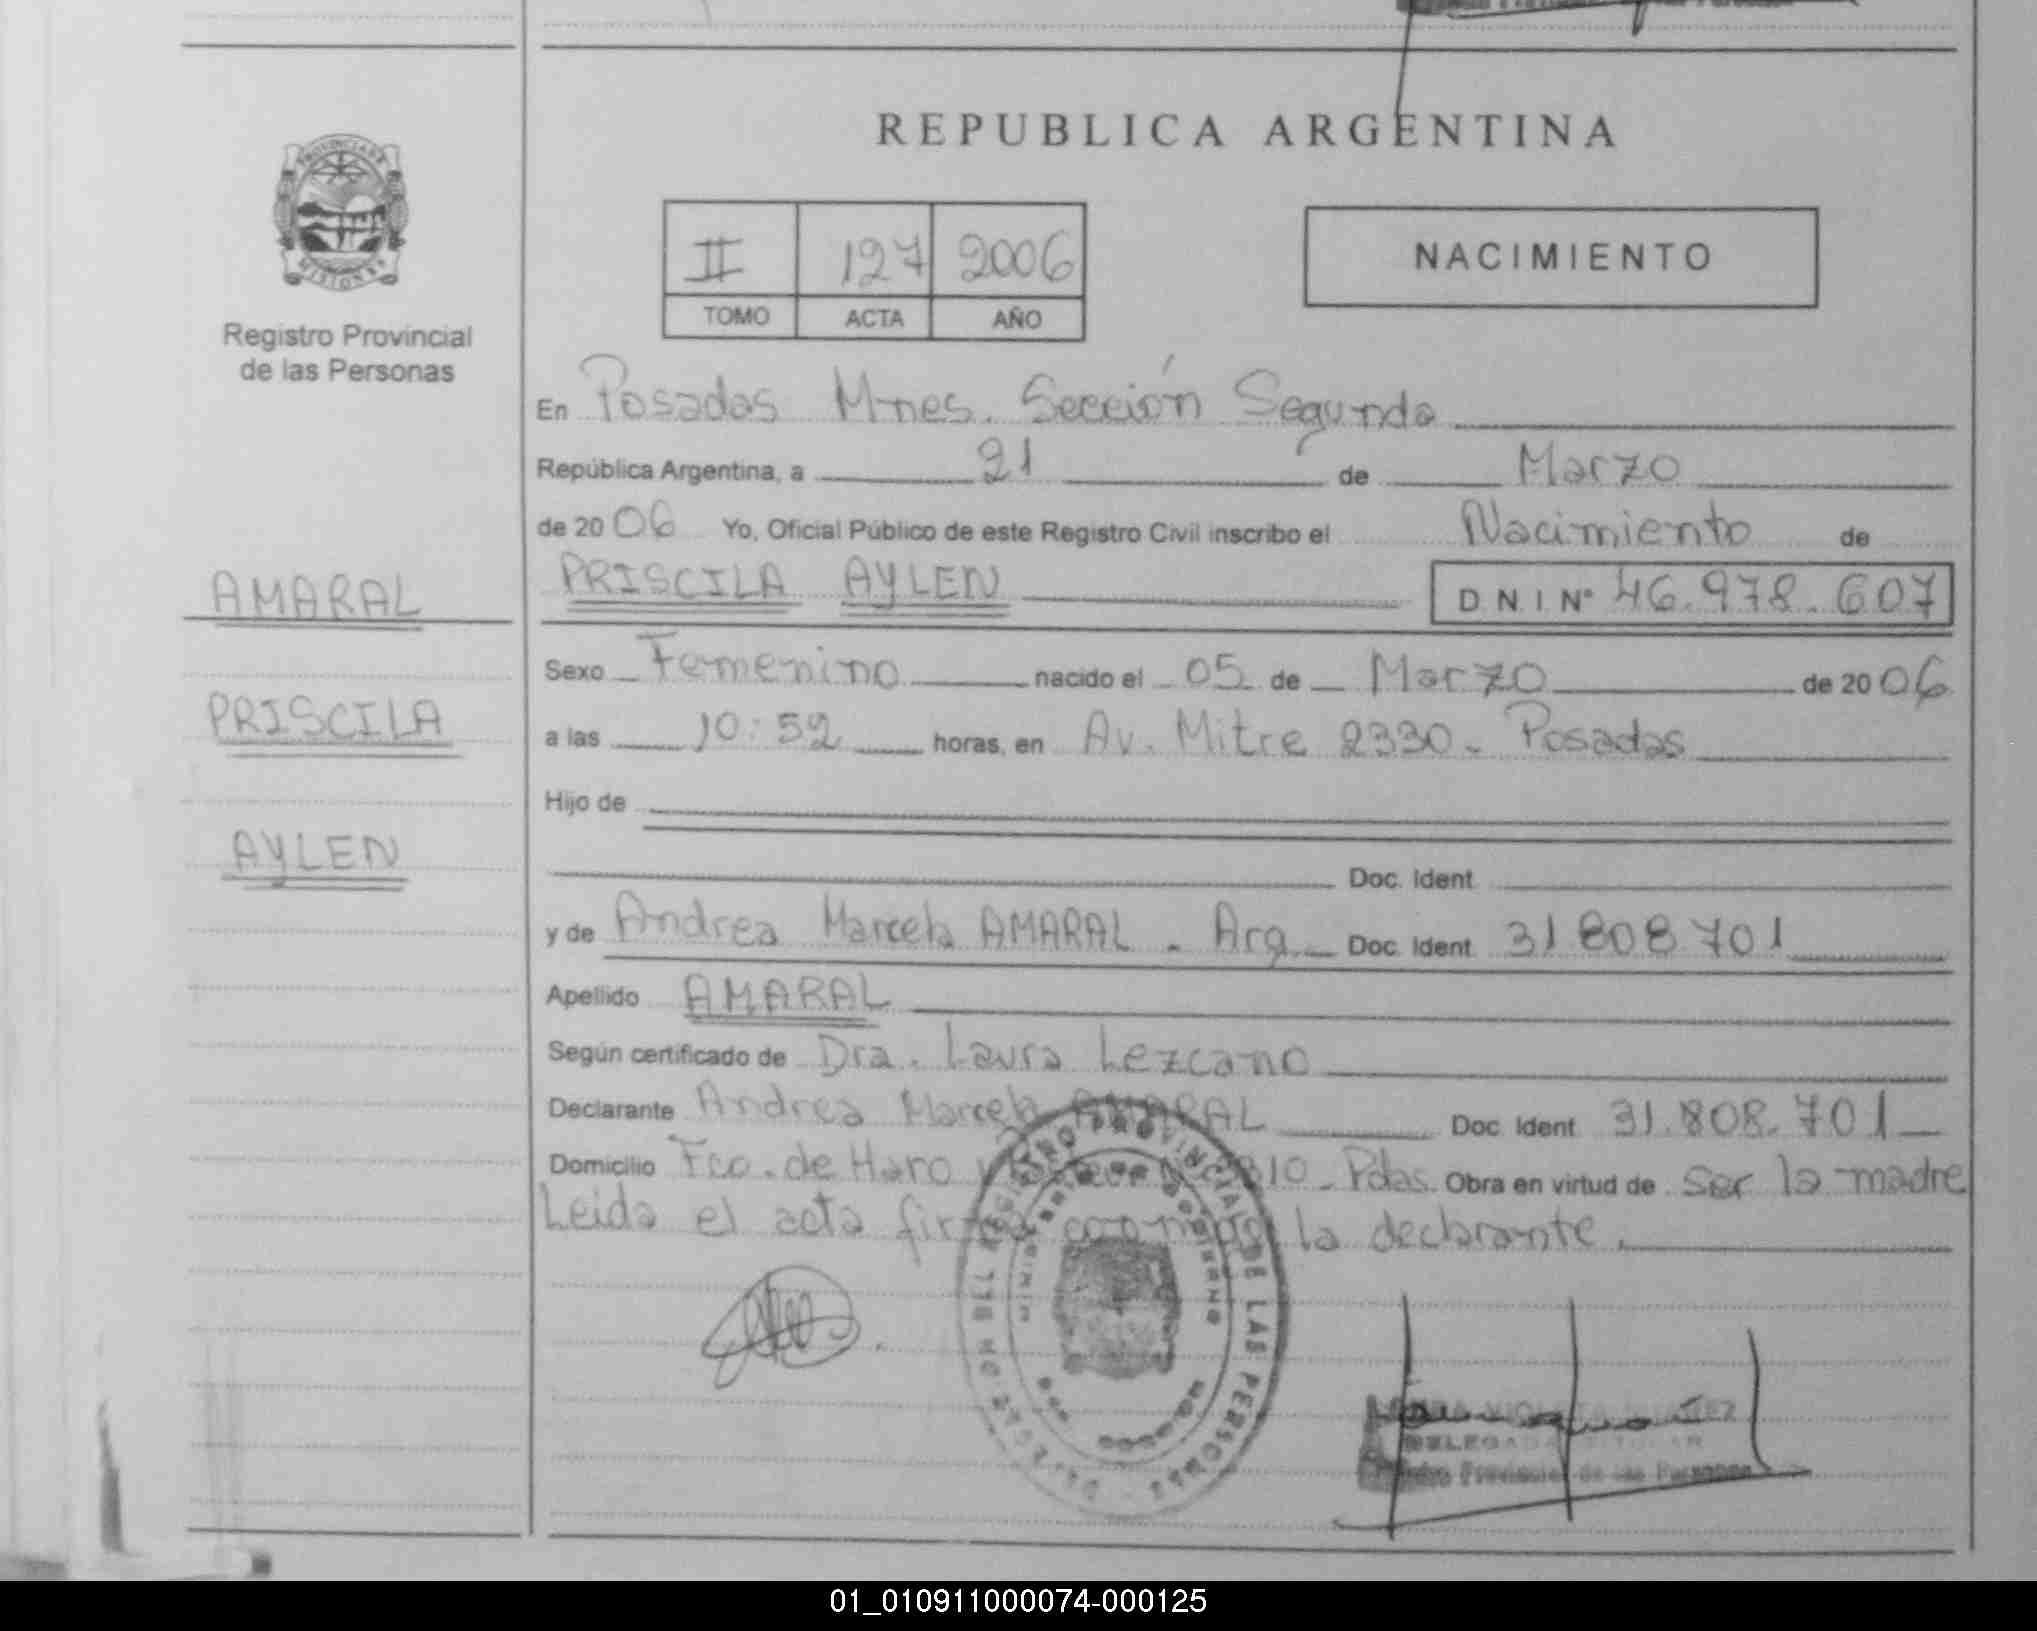 REPUBLICA ARGENTINA
PROVINCIA DE
MISIONES
Registro Provincial
de las Personas
II 127 2006
TOMO ACTA AÑO
NACIMIENTO
En Posadas Mnes. Sección Segunda
República Argentina, a 21 de Marzo
de 2006 Yo, Oficial Público de este Registro Civil inscribo el Nacimiento de
AMARAL
PRISCILA AYLEN D N I Nº 46.978.607
Sexo Femenino nacido el 05 de Marzo de 2006
PRISCILA
a las 10:52 horas, en Av. Mitre 2330. Posadas
Hijo de
AYLEN
Doc. Ident.
y de Andrea Marcela AMARAL - Arg. Doc. Ident. 31 808 701
Apellido AMARAL
Según certificado de Dra. Laura Lezcano
Declarante Andrea Marcela AMARAL Doc. Ident. 31.808.701
Domicilio Fco. de Haro 310 - Pdas. Obra en virtud de ser la madre
Leida el acta firma la declarante.
REGISTRO PROVINCIAL DE LAS PERSONAS
DELEGADA TITULAR
Registro Provincial de las Personas
01_010911000074-000125